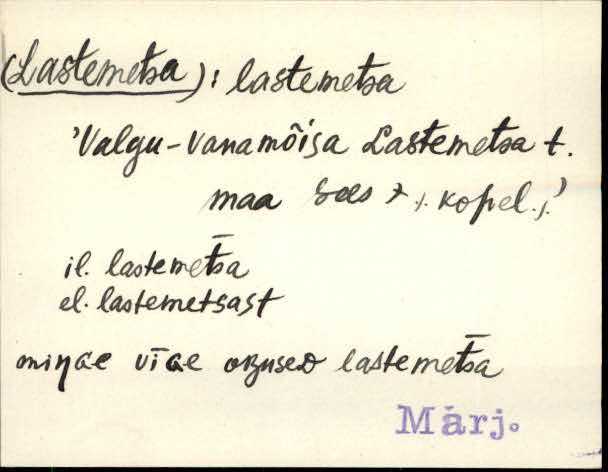 (Lastemetsa): lastemetsa
'Valgu-Vanamõisa Lastemetsa t.
maa sees t. kopel.'
il. lastemet̄sa
el. lastemetsast
miŋɢe vīɢe oʙused lastemet̄sa
Märj.